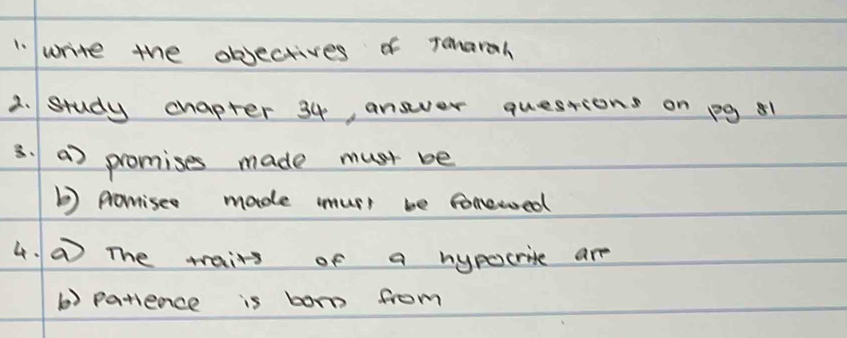 1. write the objectives of Tanarah
2. study chapter 34, answer questions on pg 81
3. a) promises made must be
b) promises made must be followed
4. a) The traits of a hypocrite are
b) patience is born from